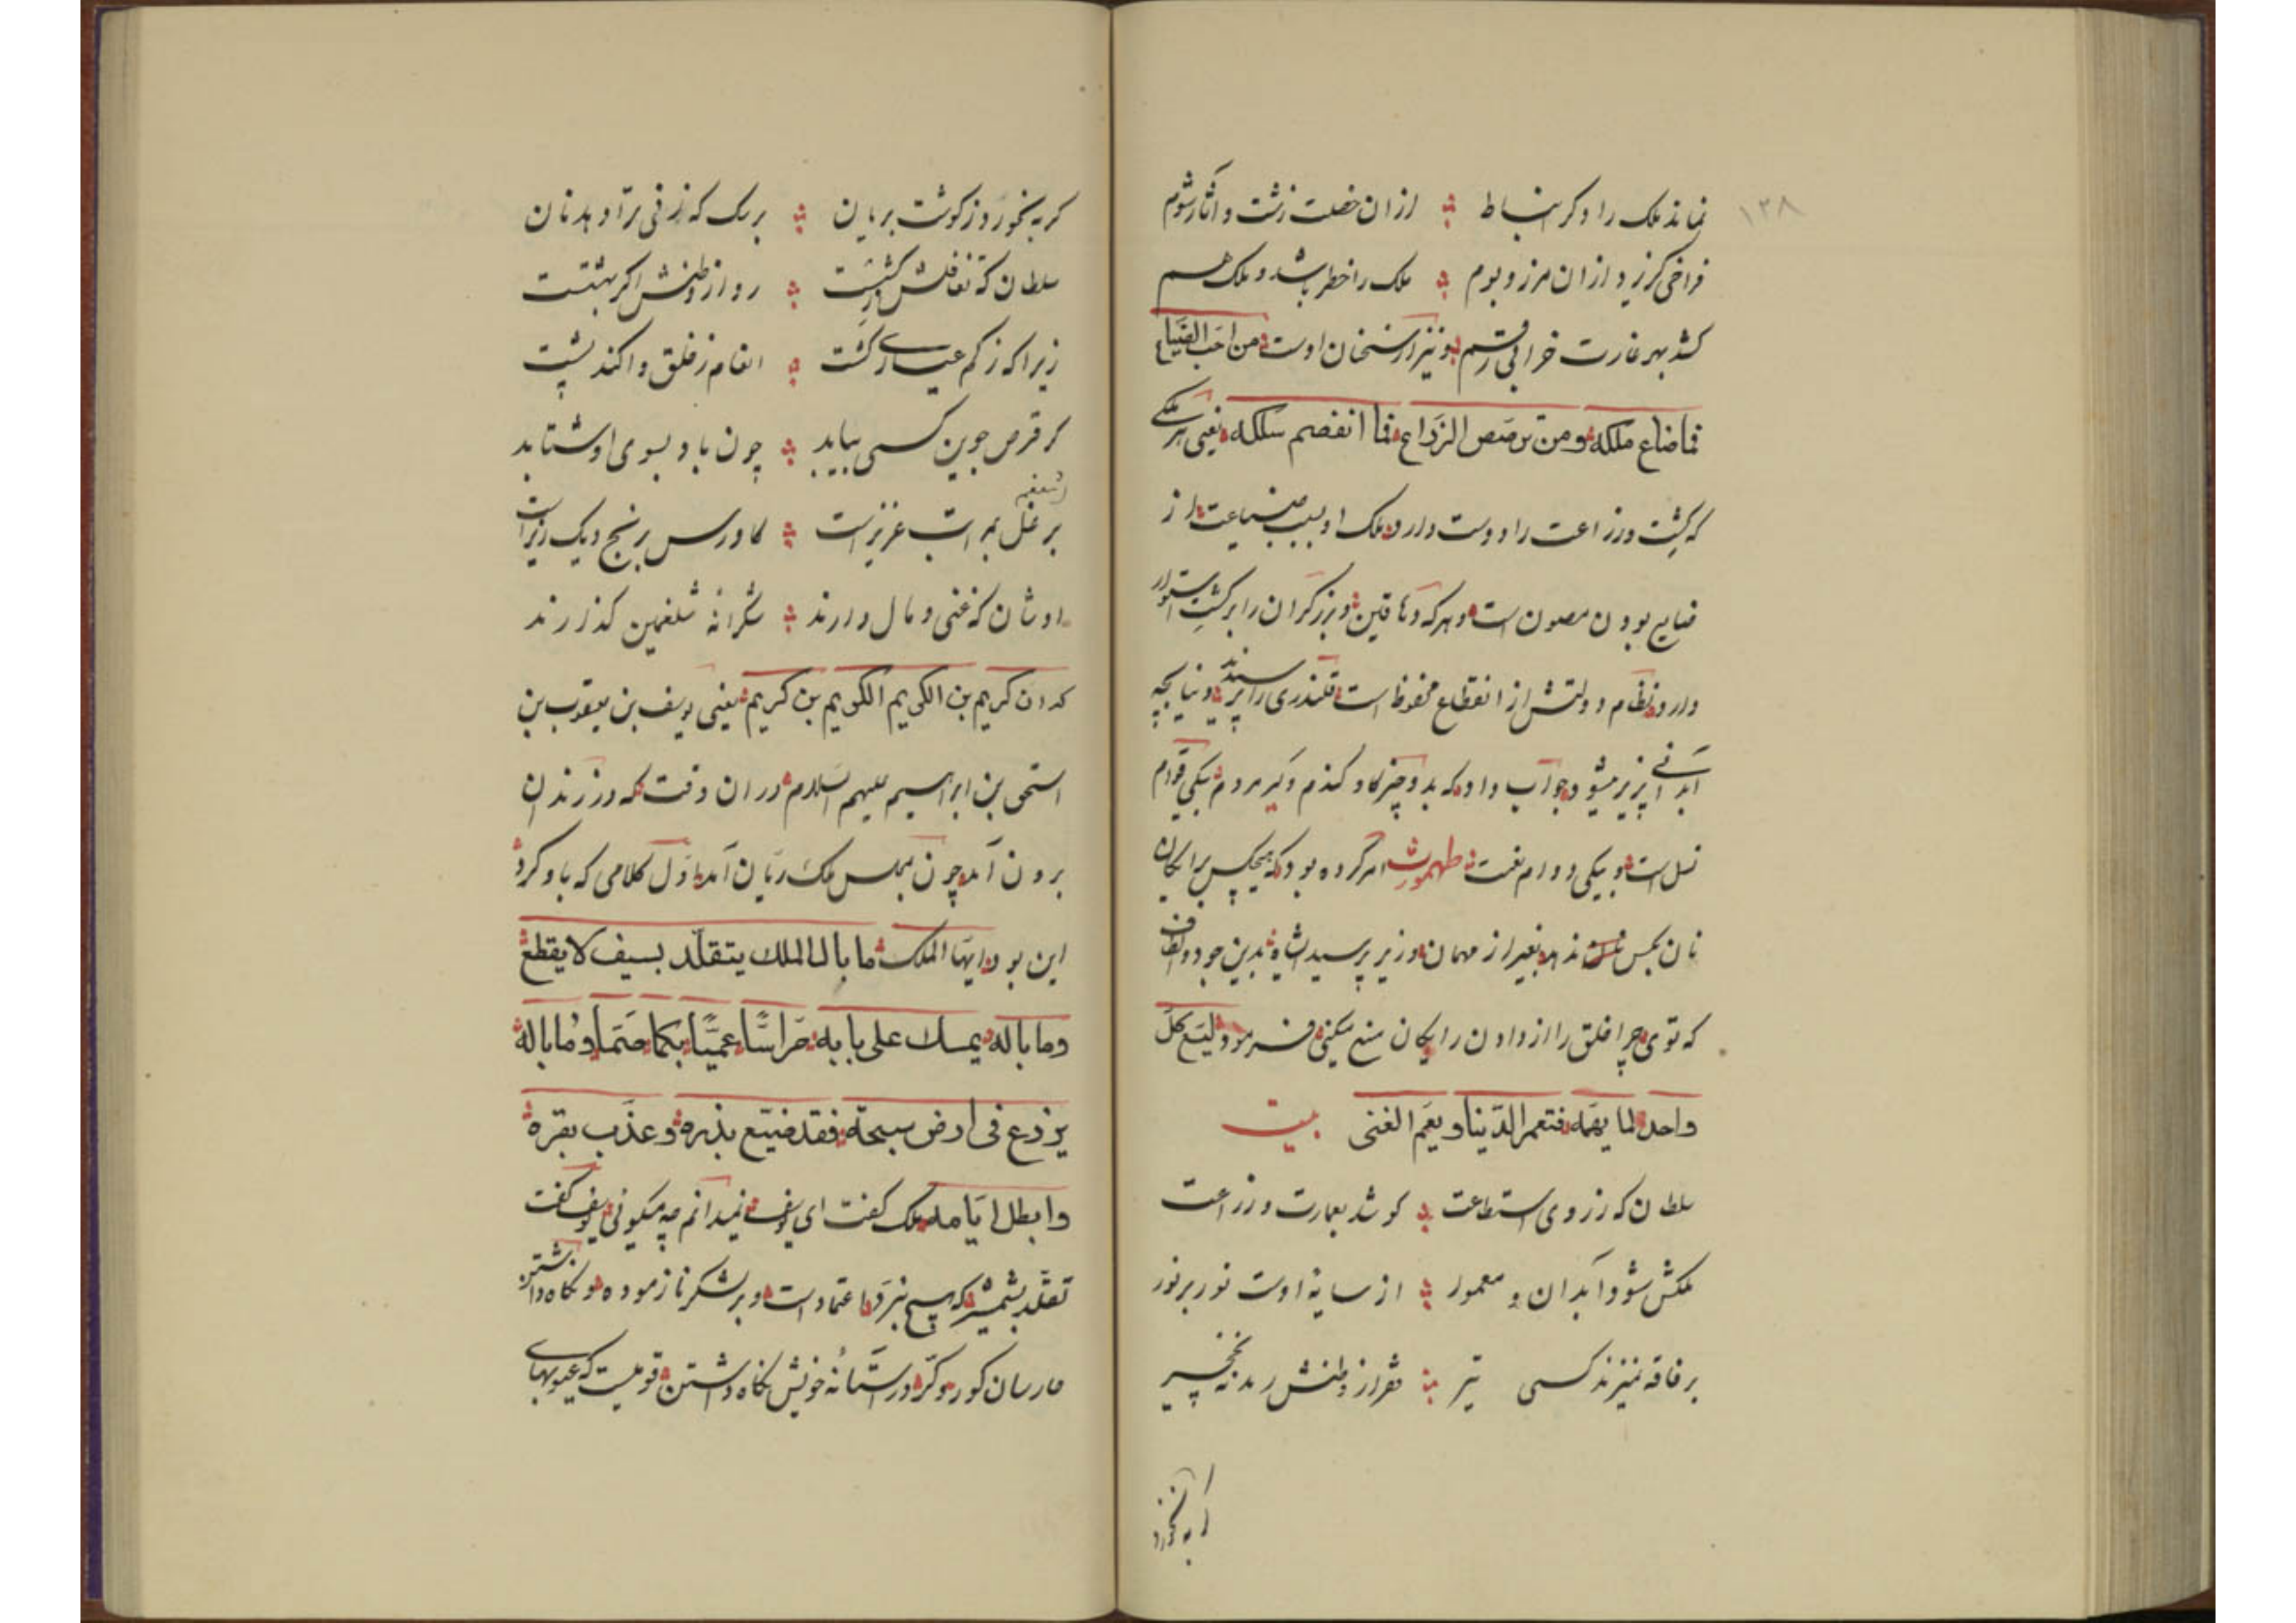 ۱۳۸
نماند ملک را دکر انبساط ؞ ازان خصلت زشت و آثار شوم
فراخی کرزید ازان مرز و بوم ؞ ملک را خطر باشد و ملک هم
کشد بهر غارت خرابی رقم و نیز از سخنان اوست من احب الضیاع
فما ضاع ملکه ومن الزراع فما انفصم سلکه یعنی هر ملکی
که کشت وزراعت را دوست دارد ملک او بسبب ضیاعت از
ضایع بودن مصون است و هرکه دهاقین و برزکران را بر کشت استوار
دارد نظام دولتش از انقطاع محفوظ است قلندری را پرسیدند دنیا بچه
آبدانی پزیر میشود جواب داد که بدو چیز کاو کندم و کیر مردم یکی قوام
نسل است و بیکی دوام نعمت طهمورث امر کرده بود که هیچکس برایکان
نان بکس ندهد بغیر از مهمان وزیر پرسید شاه بدین جود و الطاف
که توی چرا خلق را از دادن رایکان منع میکنی فرمود لیتبع کل
واحد لما یهمه فتعمر الدنیا و یعم الغنی بیت
سلطان که ز روی استطاعت ؞ کوشد بعمارت و زراعت
ملکش شود آبدان و معمور ؞ از سایهٔ اوست نور بر نور
بر فاقه نمیزند کسی تیر ؞ فقر از وطنش رمد نخجیر
کربه نخورد
کربه نخورد ز کوشت بریان ؞ بر سک که ز فی تراود نان
سلطان که تغافلش کشیست ؞ رو از وطنش اکر بهشتست
زیرا که ز کم عیاری کشت ؞ انعام ز خلق واکند پشت
کر قرص جوین کسی بیابد ؞ چون باد بسوی او شتابد
بر غله مراتب عزیز است ؞ کاورس برنج دیک ریز است
اوشان که غنی و مال دارند ؞ شکرانهٔ شلغمین کذارند
کدان کریم بن الکریم الکریم بن کریم یعنی یوسف بن یعقوب بن
اسحق بن ابراهیم علیهم السلام دران وقت که از زندان
برون آمد چون بمجلس ملک ریان آمد اول کلامی که باو کرد
این بود ایها الملک ما بال الملک یتقلد بسیف لا یقطع
وما باله یمسک علی بابه حراسا عمیا بکما صما وما باله
یزرع فی ارض سبخة فقد ضیع بذره وعذب بقره
وابطل ایامه ملک کفت ای یوسف نمیدانم چه میکوئی یوسف کفت
تقلد بشمشیر که هیچ نبرد اعتماد است و بر لشکر نازموده و نکاه داشتن
حارسان کور و کر در آستانهٔ خویش نکاه داشتن قومیست که عیوبهای